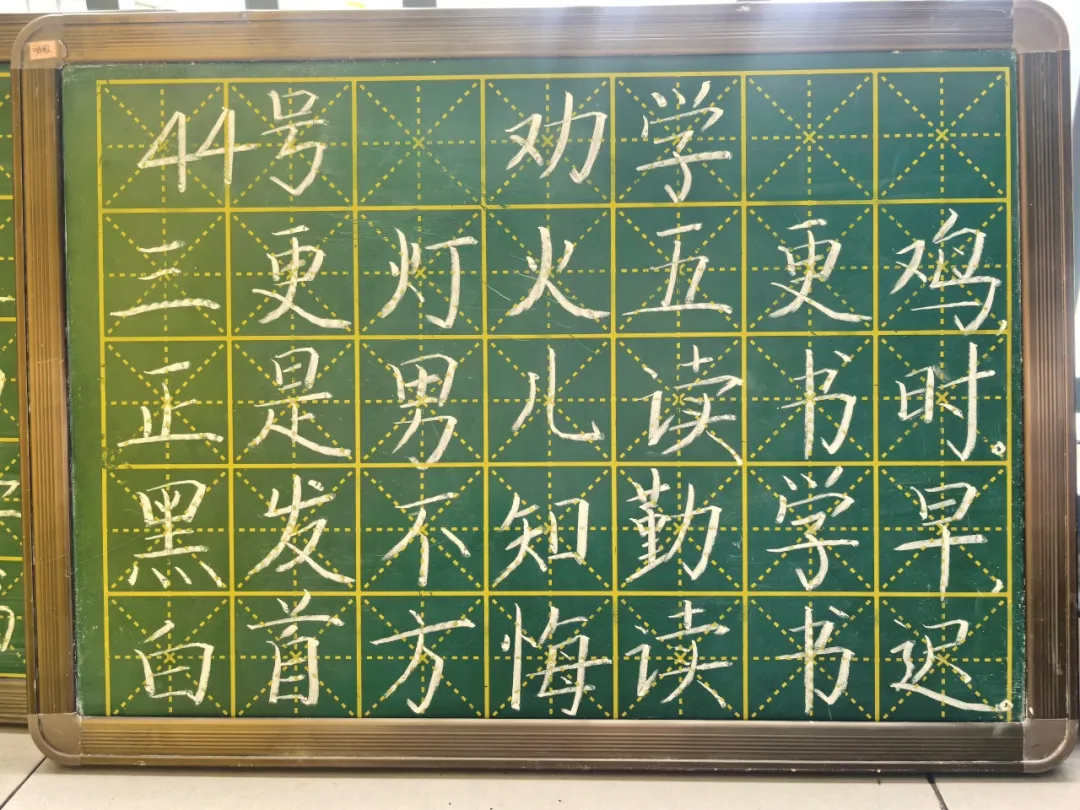 44号 劝学
三更灯火五更鸡,
正是男儿读书时。
黑发不知勤学早,
白首方悔读书迟。